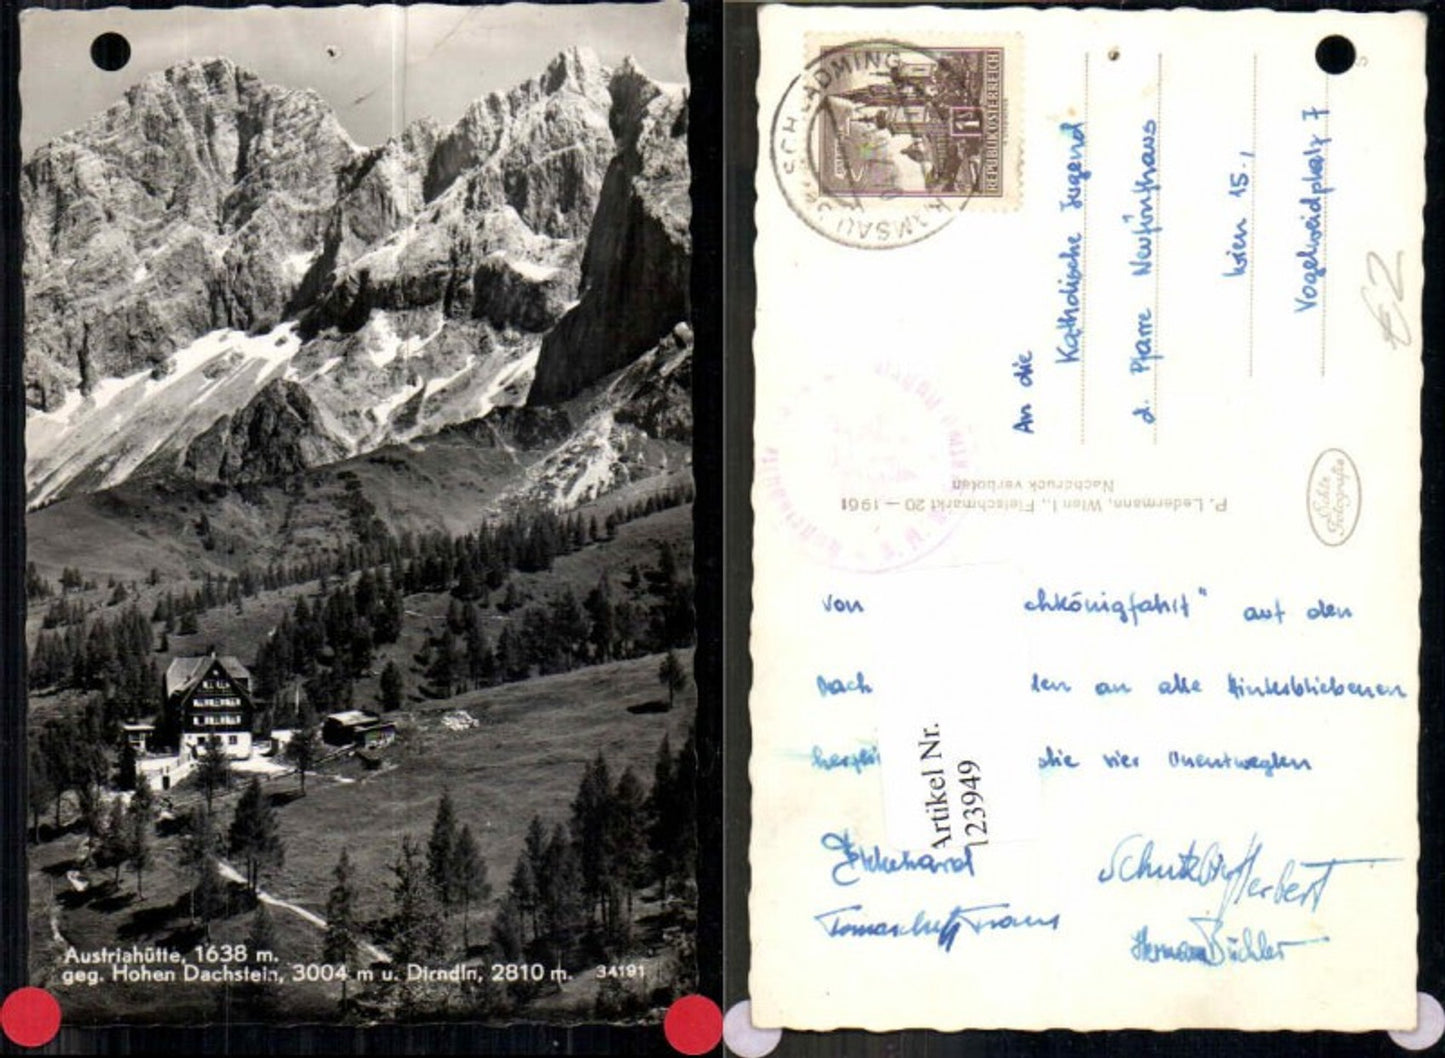 Austriahütte, 1638 m.
geg. Hohen Dachstein, 3004 m u. Dirndln, 2810 m. 34191
SCHLADMING
RAMSAU
1S
REPUBLIK ÖSTERREICH
An die
Katholische Jugend
d. Pfarre Neufünfhaus
Wien 15.,
Vogelweidplatz 7
€2
P. Ledermann, Wien I., Fleischmarkt 20 – 1961
Nachdruck verboten
Echte Fotografie
von chkönigfahrt" auf den
Dach den an alle Hinterbliebenen
herzli die vier Unentwegten
Artikel Nr.
123949
Ekkehard
Herbert
Franz
Hermann Büchler